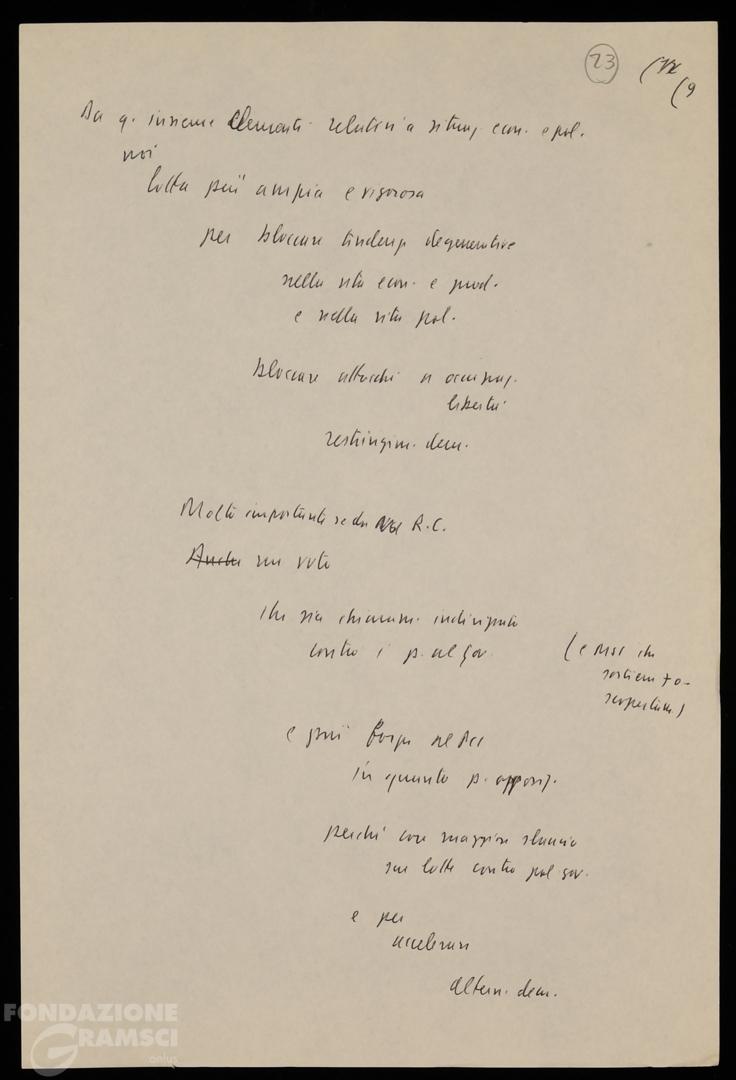 23
Da q. insieme elementi relativi a situaz. econ. e pol.
noi
lotta più ampia e vigorosa
per bloccare tendenz. degenerative
nella vita econ. e prod.
e nella vita pol.
bloccare attacchi a occupaz.
libertà
restringim. dem.
Molto importante R.C.
Anche un voto
che sia chiaram. indirizzato
contro i p. al gov.
(e MSI che
sostiene + o -
scopertam.)
e più forza al PCI
in quanto p. opposiz.
perché con maggiore slancio
sue lotte contro pol. gov.
e per
accelerare
altern. dem.
FONDAZIONE
GRAMSCI
onlus